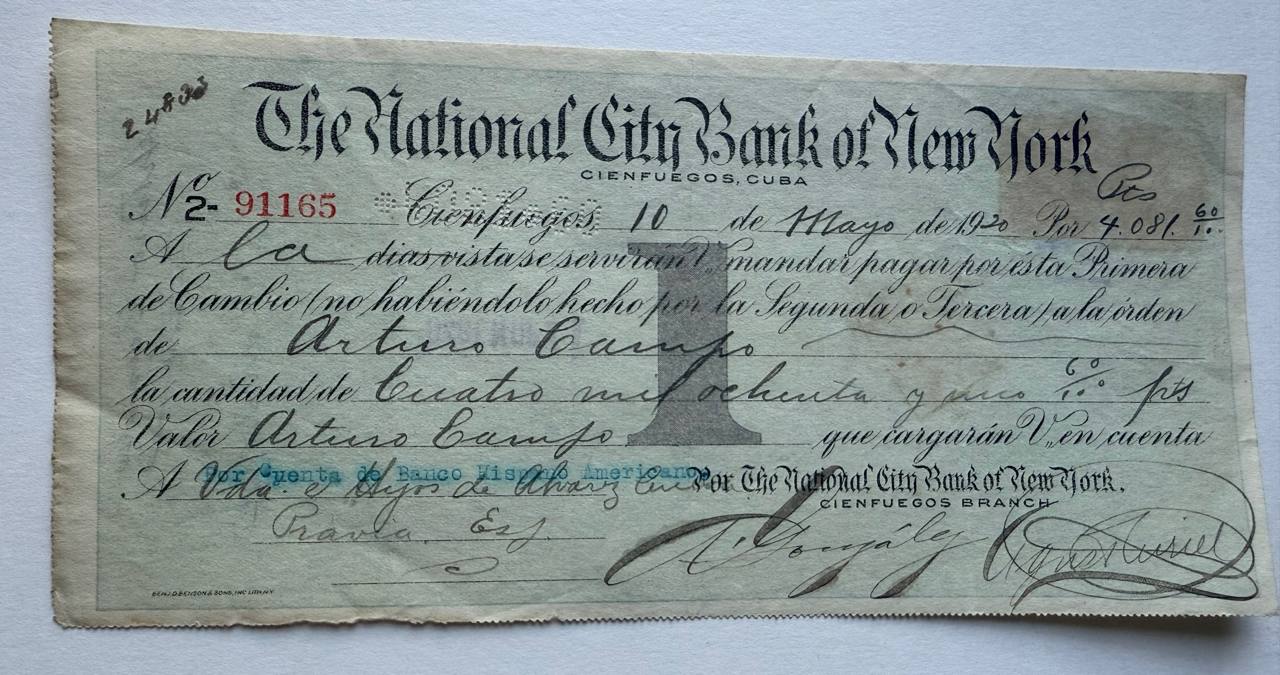 24833
The National City Bank of New York
CIENFUEGOS, CUBA
Pts
Nº 2- 91165 Cienfuegos, 10 de Mayo de 1920 Por 4.081. 60/10.
A la dias vista se servirán V,, mandar pagar por ésta Primera
de Cambio (no habiéndolo hecho por la Segunda o Tercera) a la órden
1
de Arturo Campo
la cantidad de Cuatro mil ochenta y uno 60/10 pts
Valor Arturo Campo que cargarán V,, en cuenta
Por Cuenta de Banco Hispano Americano
A Vda. e Hijos de Alvarz Por The National City Bank of New York.
CIENFUEGOS BRANCH
Pravia. Esp. A. González
BENJ. D. BENSON & SONS, INC. LITH. N.Y.